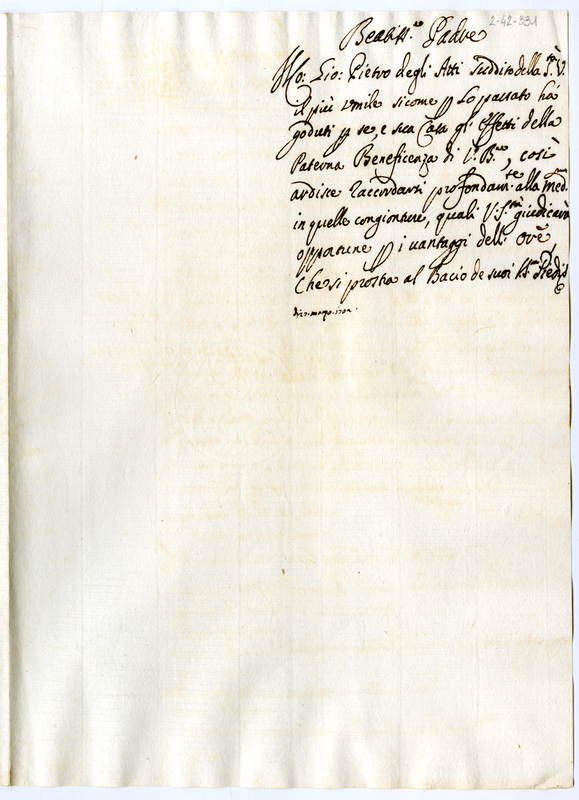 2-42-331
Beatiss.mo Padre
Gio: Pietro degli Atti suddito della S.tà V.
il più umile sicome p lo passato hà
goduti p se, e sua Casa gli effetti della
Paterna Beneficenza di V. B.ne, così
ardisce raccordarsi profondam.te alla med.ma
in quelle congionture, quali V. S.tà giudicarà
opportune p i vantaggi dell' Ore,
Che si prostra al Bacio de suoi SS.mi Piedi